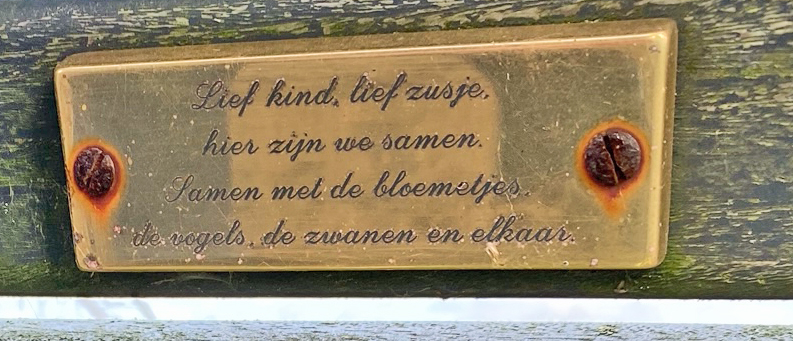 Lief kind, lief zusje,
hier zijn we samen.
Samen met de bloemetjes,
de vogels, de zwanen en elkaar.